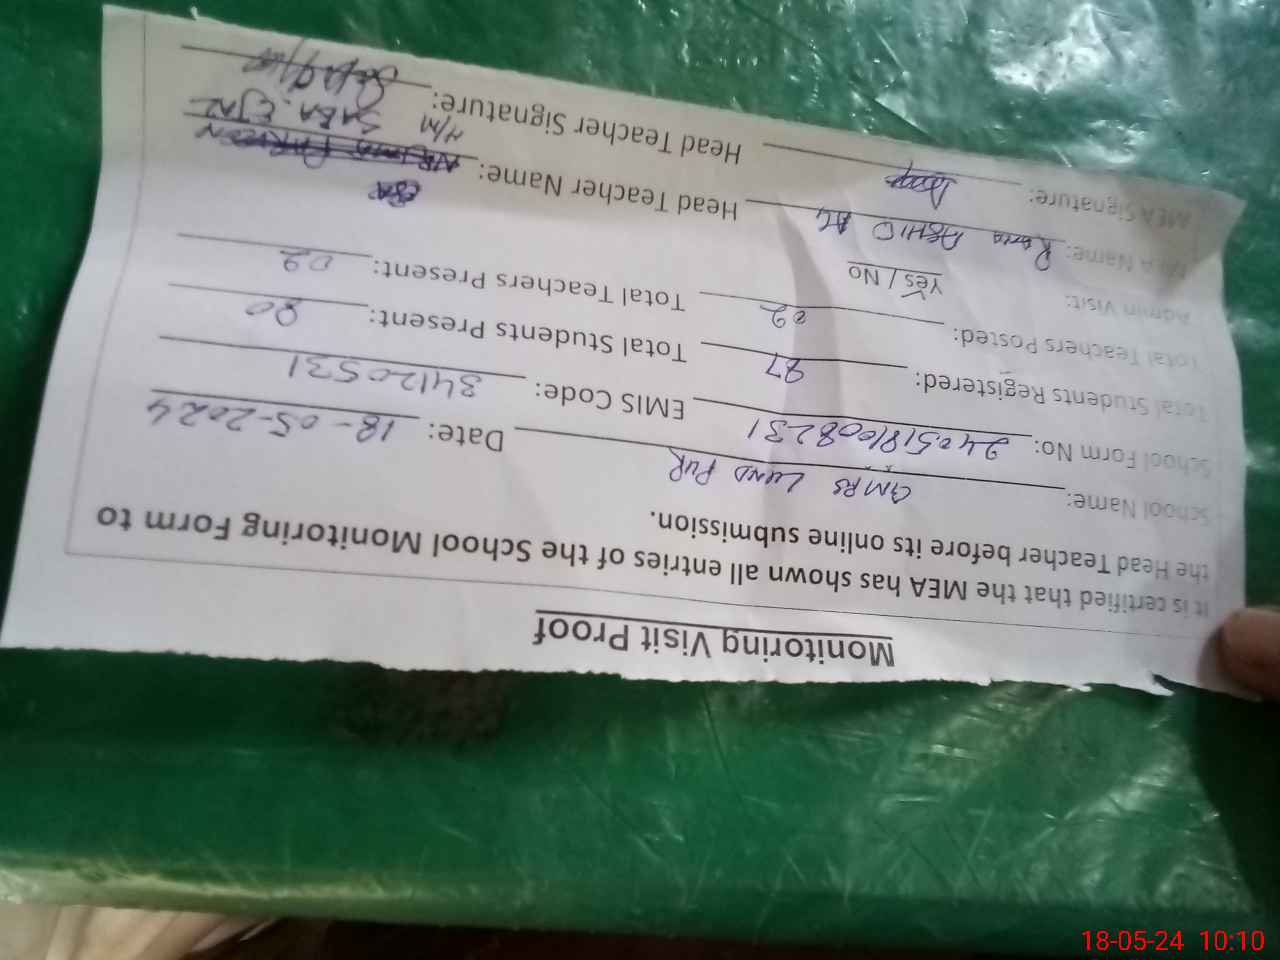 Monitoring Visit Proof
It is certified that the MEA has shown all entries of the School Monitoring Form to
the Head Teacher before its online submission.
School Name: GMPS LUND PUR Date: 18-05-2024
School Form No: 240518/008231 EMIS Code: 34120531
Total Students Registered: 97 Total Students Present: 80
Total Teachers Posted: 02 Total Teachers Present: 02
Admin Visit: Yes / No
MEA Name: Rana ASHIQ Ali Head Teacher Name: PARVEEN
H/M SABA EJAZ
MEA Signature: Head Teacher Signature:
18-05-24 10:10